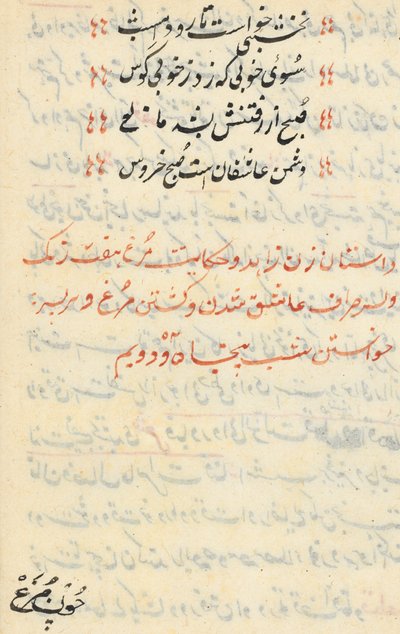 نخشبی خواست تا رود امشب
سوئ خوبی که زد ز خوبی کوس
صبح از رفتنش بشد مانع
دشمن عاشقان است صبح خروس
داستان زن زاهد و حکایت مرغ هفت رنگ
و پسر صراف عاشق شدن و کشتن مرغ و بر سر
خواستن شب پنجاه و دویم
چون مرغ